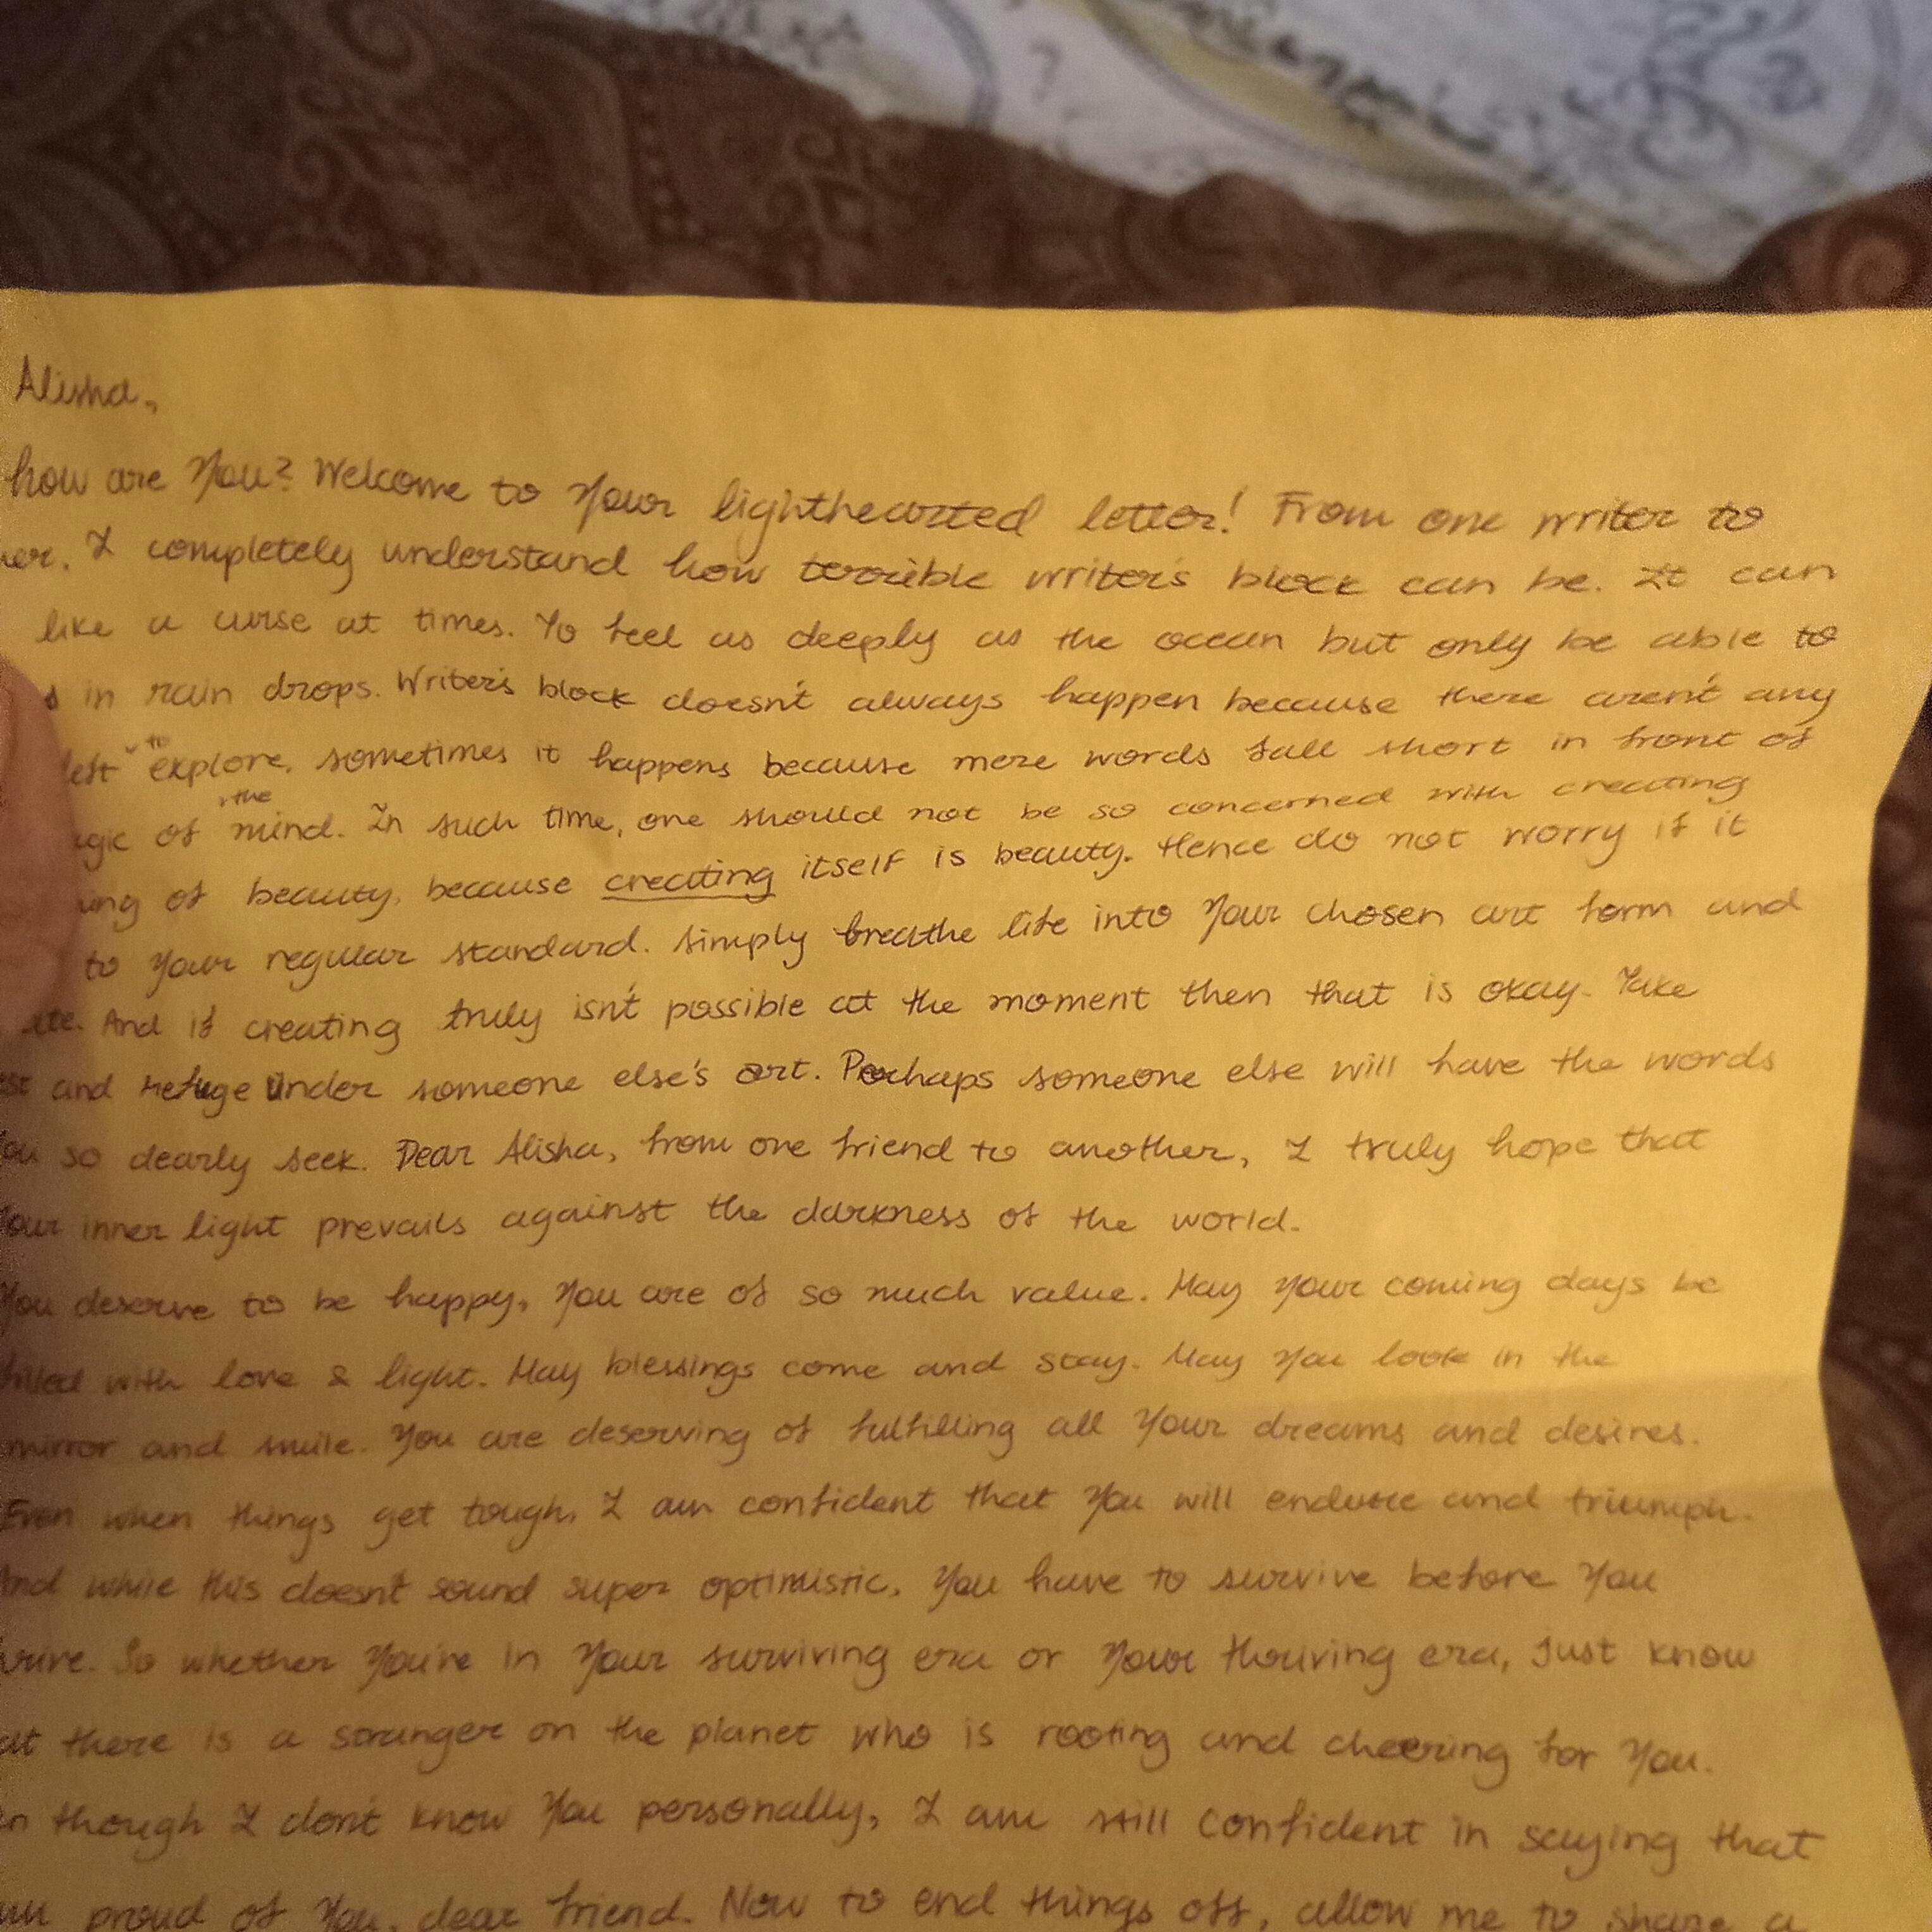 Alisha,
how are You? Welcome to Your lighthearted letter! From one writer to
I completely understand how terrible writer's block can be. It can
like a curse at times. To feel as deeply as the ocean but only be able to
in rain drops. Writer's block doesn't always happen because there aren't any
left to explore, sometimes it happens because mere words fall short in front of
of the mind. In such time, one should not be so concerned with creating
of beauty, because creating itself is beauty. Hence do not worry if it
to Your regular standard. Simply breathe life into Your chosen art form and
And if creating truly isn't possible at the moment then that is okay. Take
and refuge under someone else's art. Perhaps someone else will have the words
so dearly seek. Dear Alisha, from one friend to another, I truly hope that
Your inner light prevails against the darkness of the world.
You deserve to be happy, You are of so much value. May Your coming days be
filled with love & light. May blessings come and stay. May You look in the
mirror and smile. You are deserving of fulfilling all Your dreams and desires.
Even when things get tough, I am confident that You will endure and triumph.
And while this doesn't sound super optimistic, You have to survive before You
So whether You're in Your surviving era or Your thriving era, Just know
there is a stranger on the planet who is rooting and cheering for You.
though I don't know You personally, I am still confident in saying that
proud of You, dear friend. Now to end things off, allow me to share a